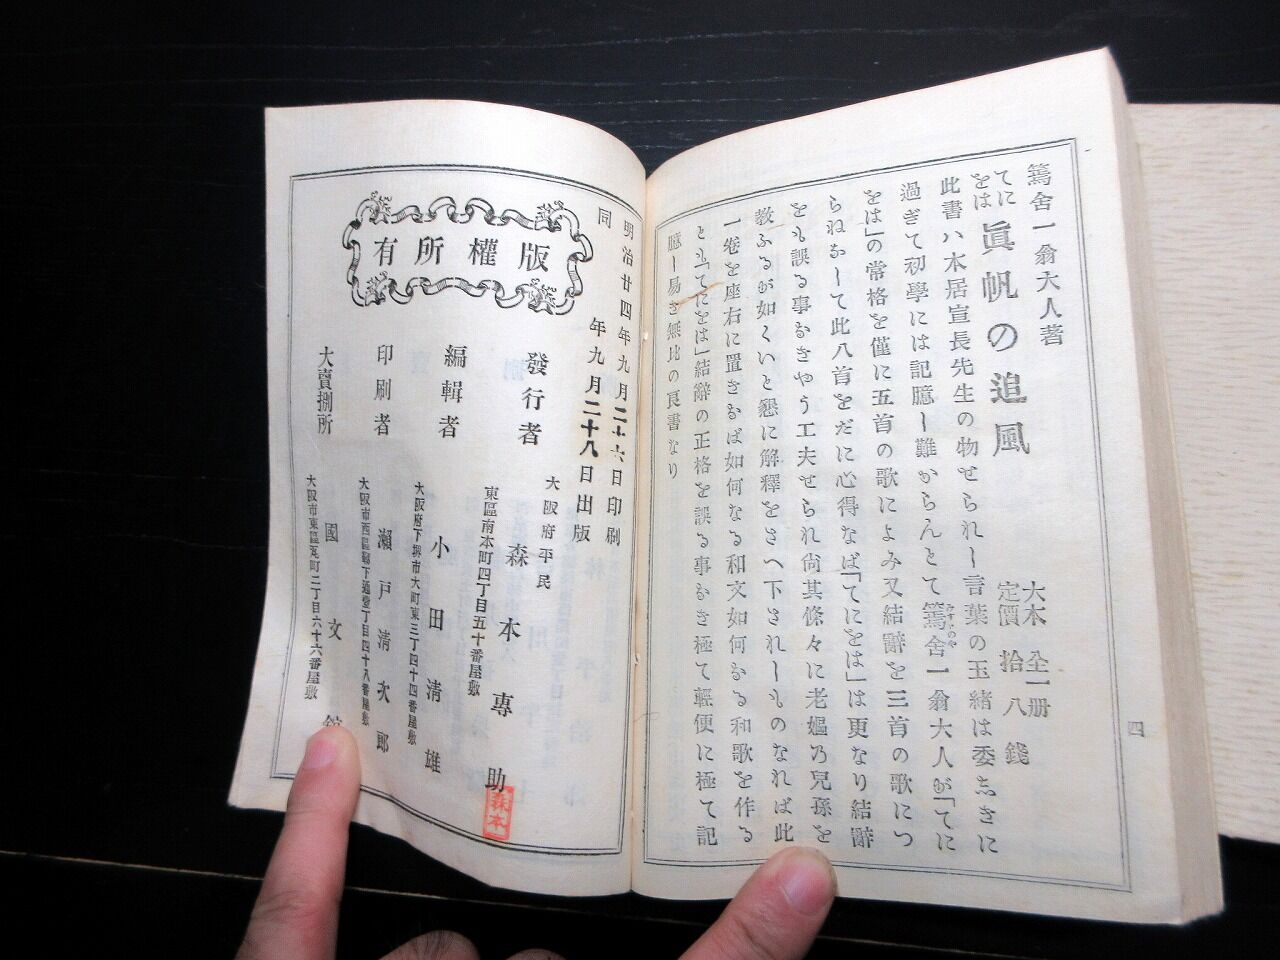 篶舍一翁大人著
てにをは 眞帆の追風
大本全一册
定價拾八錢
此書ハ本居宣長先生の物せられし言葉の玉緒は委しきに
過ぎて初學には記臆し難からんとて篶舍一翁大人が「てに
をは」の常格を僅に五首の歌によみ又結辭を三首の歌につ
らねおして此八首をだに心得なば「てにをは」は更なり結辭
をも誤る事なきやう工夫せられ尙其條々に老嫗乃兒孫を
敎ふるが如くいと懇に解釋をさへ下されしものなれば此
一卷を座右に置きなば如何なる和文如何なる和歌を作る
とも「てにをは」結辭の正格を誤る事なき極て輕便に極て記
臆し易き無比の良書なり
四
明治廿四年九月二十六日印刷
同年九月二十八日出版
版權所有
發行者
大阪府平民
森本專助
東區南本町四丁目五十番屋敷
森本
編輯者
小田淸雄
大阪府下堺市大町東三丁四十四番屋敷
印刷者
瀨戸淸次郎
大阪市西區丁目四十八番屋敷
大賣捌所
國文舘
大阪市東區瓦町二丁目六十六番屋敷